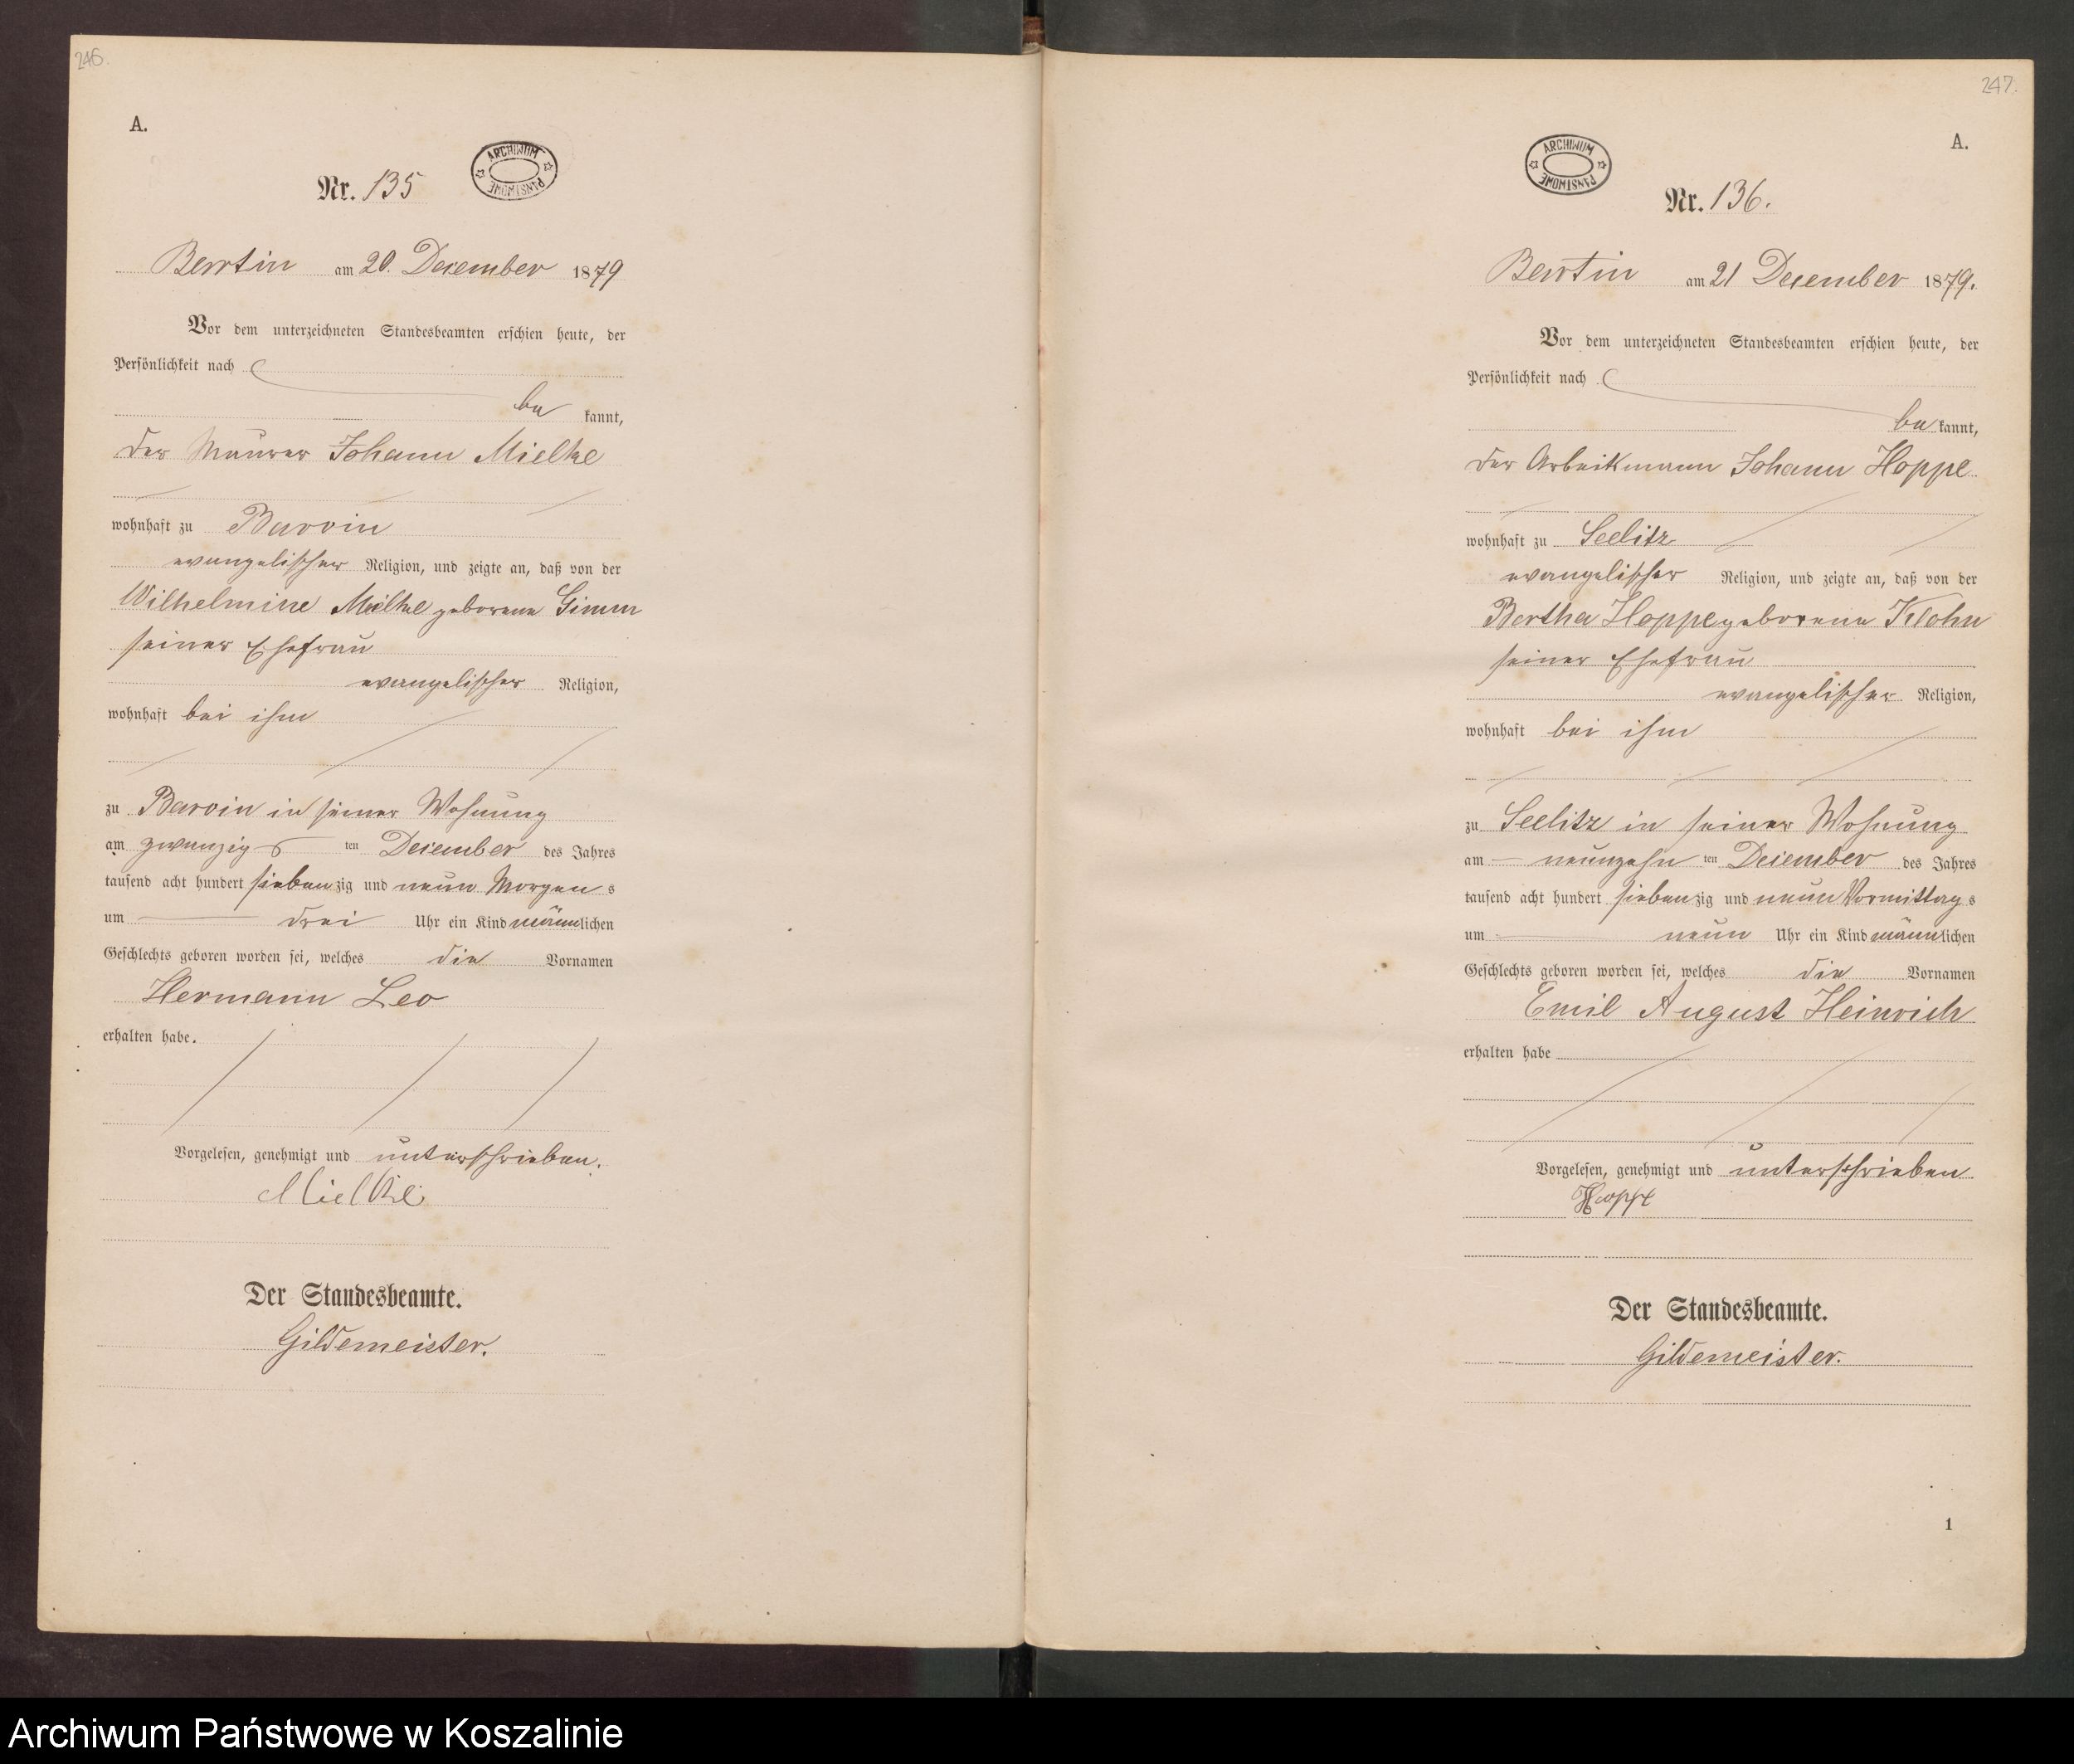 246.
A.
ARCHIWUM PAŃSTWOWE
Nr. 135
Berstin am 20. December 1879
Vor dem unterzeichneten Standesbeamten erschien heute, der
Persönlichkeit nach
be kannt,
der Maurer Johann Mielke
wohnhaft zu Barvin
evangelischer Religion, und zeigte an, daß von der
Wilhelmine Mielke geborene Gimm
seiner Ehefrau
evangelischer Religion,
wohnhaft bei ihm
zu Barvin in seiner Wohnung
am zwanzigsten December des Jahres
tausend acht hundert siebenzig und neun Morgens
um drei Uhr ein Kind männlichen
Geschlechts geboren worden sei, welches die Vornamen
Hermann Leo
erhalten habe.
Vorgelesen, genehmigt und unterschrieben.
Mielke
Der Standesbeamte.
Gildemeister.
247.
A.
ARCHIWUM PAŃSTWOWE
Nr. 136.
Berstin am 21 December 1879.
Vor dem unterzeichneten Standesbeamten erschien heute, der
Persönlichkeit nach
be kannt,
der Arbeitsmann Johann Hoppe
wohnhaft zu Seelitz
evangelischer Religion, und zeigte an, daß von der
Bertha Hoppe geborene Klohn
seiner Ehefrau
evangelischer Religion,
wohnhaft bei ihm
zu Seelitz in seiner Wohnung
am neunzehnten December des Jahres
tausend acht hundert siebenzig und neun Vormittags
um neun Uhr ein Kind männlichen
Geschlechts geboren worden sei, welches die Vornamen
Emil August Heinrich
erhalten habe
Vorgelesen, genehmigt und unterschrieben
Hoppe
Der Standesbeamte.
Gildemeister.
1
Archiwum Państwowe w Koszalinie